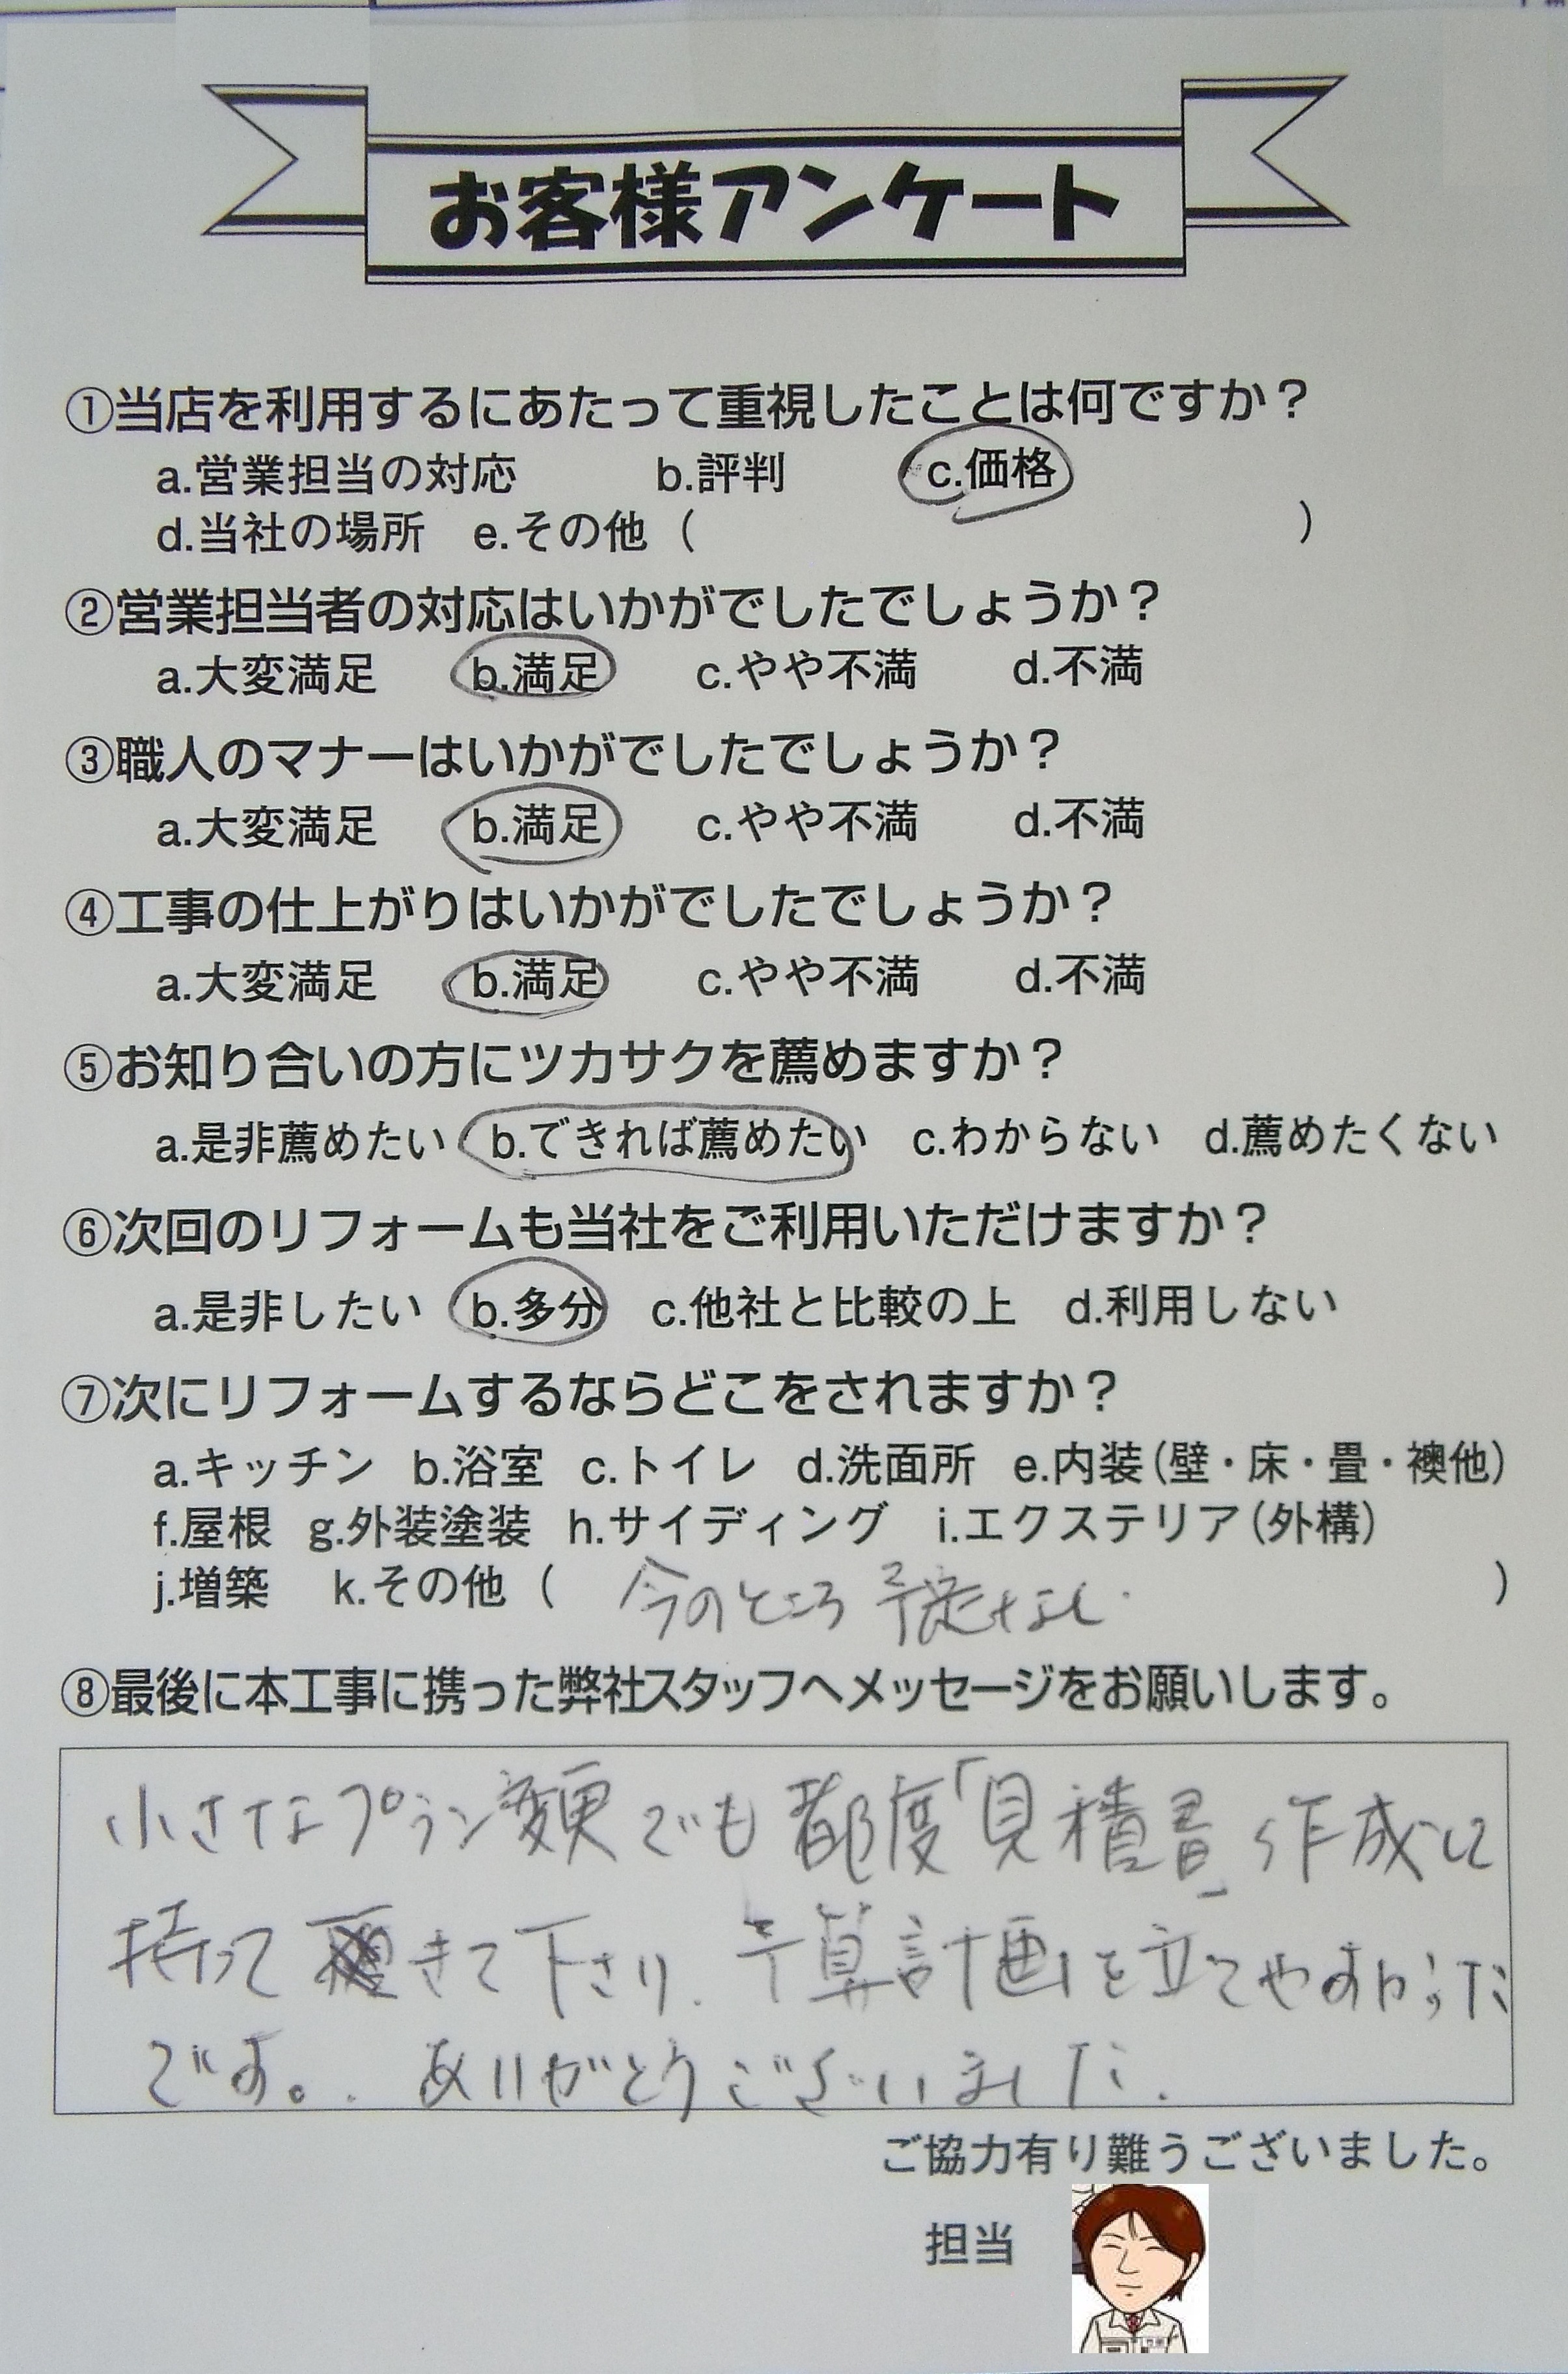 お客様アンケート
①当店を利用するにあたって重視したことは何ですか？
a.営業担当の対応 b.評判 c.価格
d.当社の場所 e.その他（ ）
②営業担当者の対応はいかがでしたでしょうか？
a.大変満足 b.満足 c.やや不満 d.不満
③職人のマナーはいかがでしたでしょうか？
a.大変満足 b.満足 c.やや不満 d.不満
④工事の仕上がりはいかがでしたでしょうか？
a.大変満足 b.満足 c.やや不満 d.不満
⑤お知り合いの方にツカサクを薦めますか？
a.是非薦めたい b.できれば薦めたい c.わからない d.薦めたくない
⑥次回のリフォームも当社をご利用いただけますか？
a.是非したい b.多分 c.他社と比較の上 d.利用しない
⑦次にリフォームするならどこをされますか？
a.キッチン b.浴室 c.トイレ d.洗面所 e.内装（壁・床・畳・襖他）
f.屋根 g.外装塗装 h.サイディング i.エクステリア（外構）
j.増築 k.その他（ 今のところ 予定なし. ）
⑧最後に本工事に携った弊社スタッフへメッセージをお願いします。
小さなプラン変更でも都度「見積書」を作成して
持って きて下さり. 予算計画を立てやすかった
です。. ありがとうございました.
ご協力有り難うございました。
担当